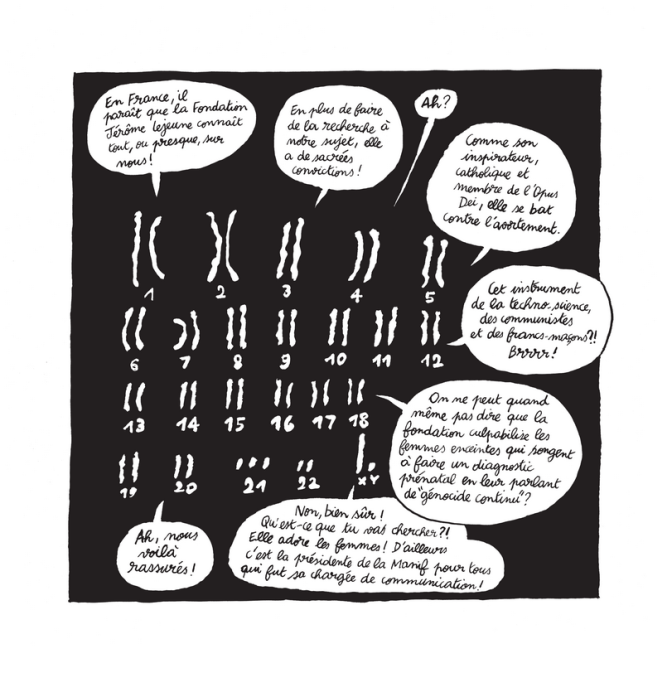 En France, il
paraît que la Fondation
Jérôme Lejeune connaît
tout, ou presque, sur
nous !
En plus de faire
de la recherche à
notre sujet, elle
a de sacrées
convictions !
Ah ?
Comme son
inspirateur,
catholique et
membre de l'Opus
Dei, elle se bat
contre l'avortement.
Cet instrument
de la techno-science,
des communistes
et des francs-maçons ?!
Brrrr !
1 2 3 4 5
6 7 8 9 10 11 12
13 14 15 16 17 18
19 20 21 22 XY
On ne peut quand
même pas dire que la
fondation culpabilise les
femmes enceintes qui songent
à faire un diagnostic
prénatal en leur parlant
de "génocide continu" ?
Non, bien sûr !
Qu'est-ce que tu vas chercher ?!
Elle adore les femmes ! D'ailleurs
c'est la présidente de la Manif pour tous
qui fut sa chargée de communication !
Ah, nous
voilà
rassurés !